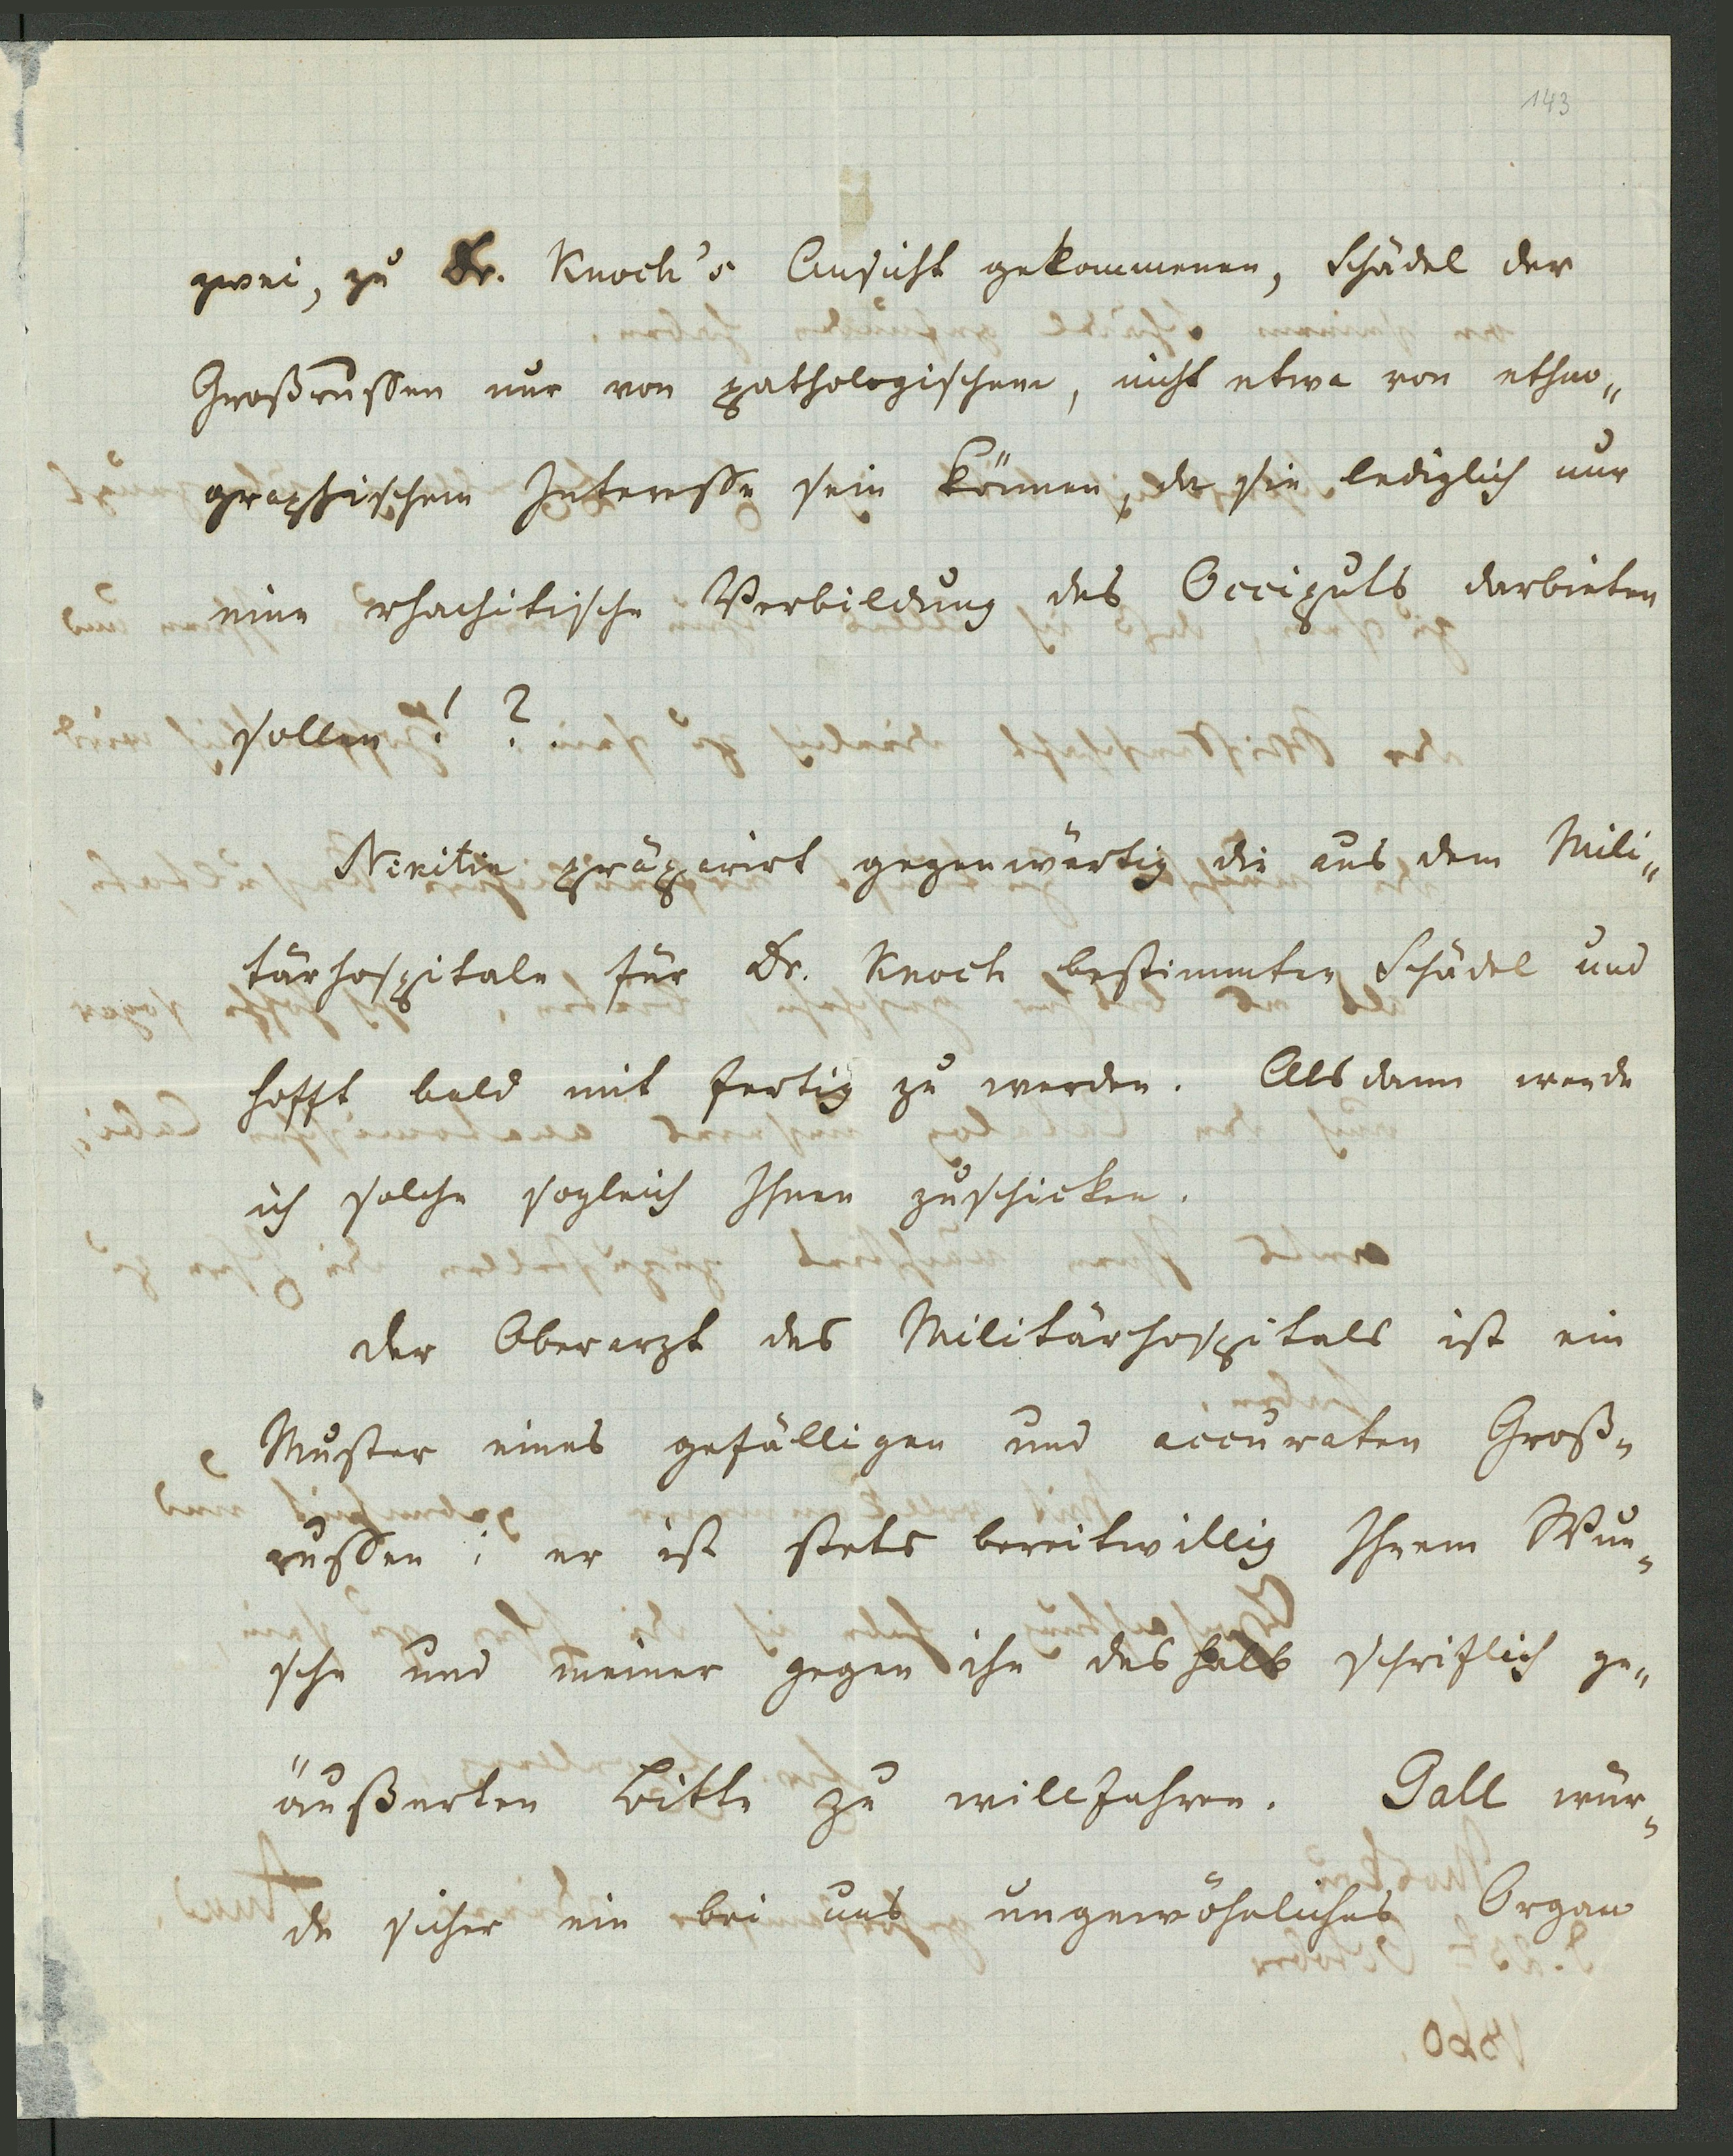 143
zwei, zu Dr. Knoch's Ansicht gekommenen, Schädel der
Großrussen nur von pathologischem, nicht etwa von ethno„
graphischem Interesse sein können, da sie lediglich nur
eine rhachitische Verbildung des Occiputs darbieten
sollen! ?
Nikitin präparirt gegenwärtig die aus dem Mili„
tärhospitale für Dr. Knoch bestimmten Schädel und
hofft bald mit fertig zu werden. Alsdann werde
ich solche sogleich Ihnen zuschicken.
Der Oberarzt des Militärhospitals ist ein
Muster eines gefälligen und accuraten Groß„
russen; er ist stets bereitwillig Ihrem Wun„
sche und meiner gegen ihn deshalb schriftlich ge„
äußerten Bitte zu willfahren. Gall wür„
de sicher ein bei uns ungewöhnliches Organ